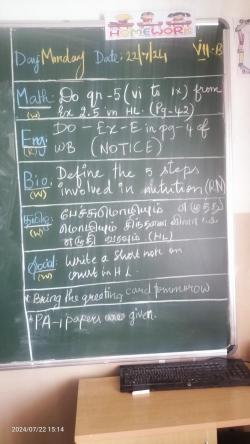 HOMEWORK
Day: Monday Date: 22/7/24 VII-B
Math: Do qn-5 (vi to ix) from
(W) Ex 2.5 in H.L. (Pg-42)
Eng: DO - Ex-E in pg-4 of
(R) WB (NOTICE)
Bio: Define the 5 steps
(W) involved in nutrition (RN)
தமிழ்: பேச்சுமொழியும் எழுத்து
(W) மொழியும்
எழுதி வரவும் (HL)
Social: Write a short note on
(W) in H L.
* Bring the greeting card tomorrow
* PA-1 papers given.
2024/07/22 15:14